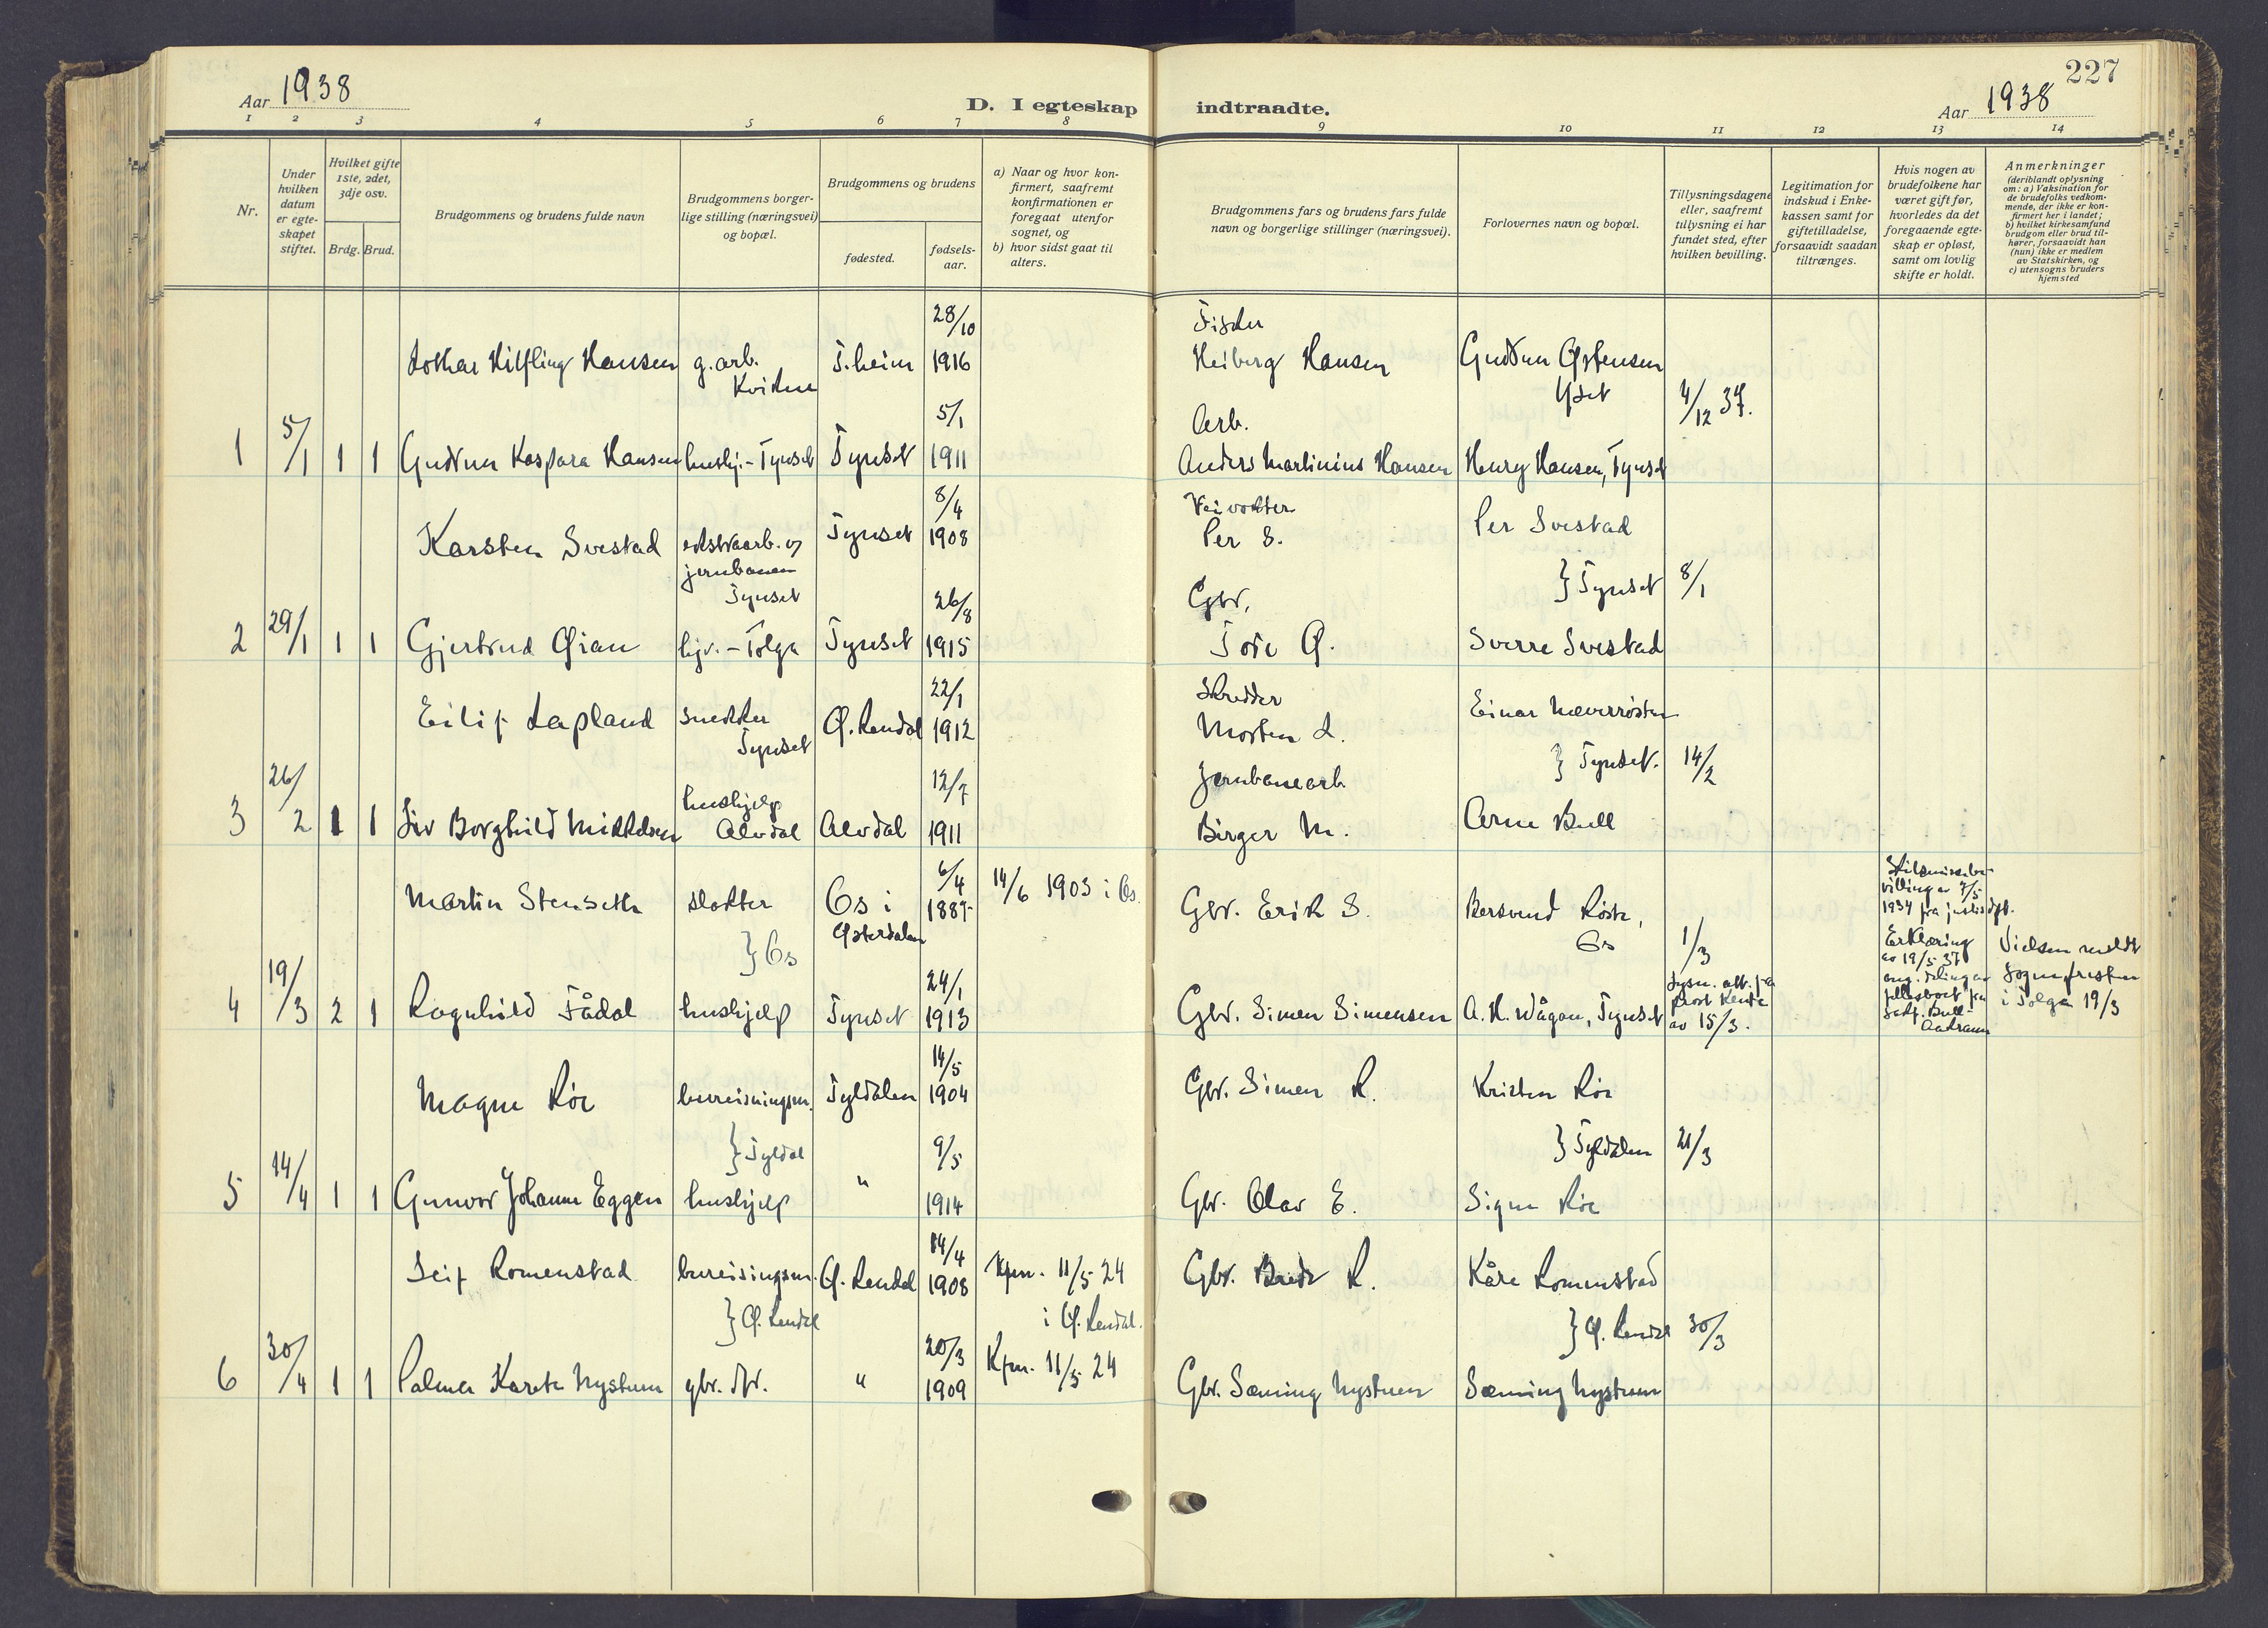 227
Aar 1938
D. I egteskap indtraadte.
Aar 1938
1 2 3 4 5 6 7 8 9 10 11 12 13 14
Nr.
Under hvilken datum er egteskapet stiftet.
Hvilket gifte 1ste, 2det, 3dje osv.
Brdg. Brud.
Brudgommens og brudens fulde navn
Brudgommens borgerlige stilling (næringsvei) og bopæl.
Brudgommens og brudens
fødested.
fødselsaar.
a) Naar og hvor konfirmert, saafremt konfirmationen er foregaat utenfor sognet, og
b) hvor sidst gaat til alters.
Brudgommens fars og brudens fars fulde navn og borgerlige stillinger (næringsvei).
Forlovernes navn og bopæl.
Tillysningsdagene eller, saafremt tillysning ei har fundet sted, efter hvilken bevilling.
Legitimation for indskud i Enkekassen samt for giftetilladelse, forsaavidt saadan tiltrænges.
Hvis nogen av brudefolkene har været gift før, hvorledes da det foregaaende egteskap er opløst, samt om lovlig skifte er holdt.
Anmerkninger
(deriblandt oplysning om: a) Vaksination for de brudefolks vedkommende, der ikke er konfirmert her i landet;
b) hvilket kirkesamfund brudgom eller brud tilhører, forsaavidt han (hun) ikke er medlem av Statskirken, og
c) utensogns bruders hjemsted
Lothar Hansen g.arb. Kvikne T.heim 28/10 1916
Fisker Heiberg Hansen Gudrun Østensen Yset 4/12 37.
1 5/1 1 1 Gudrun Kaspara Hansen hushj.- Tynset Tynset 5/1 1911
Arb. Anders Martinius Hansen Henry Hansen, Tynset
Karsten Svestad ekstraarb. v/ jernbanen Tynset Tynset 8/4 1908
Veivokter Per S. Per Svestad } Tynset 8/1
2 29/1 1 1 Gjertrud Øian hjv. - Tolga Tynset 26/8 1915
Gbr. Tore Ø. Sverre Svestad
Eilif Lapland snekker Tynset Ø. Rendal 22/1 1912
Skredder Morten L. Einar Næverrøsten } Tynset. 14/2
3 26/2 1 1 Liv Borghild Mikkelsen hushjelp Alvdal Alvdal 12/7 1911
Jernbanearb. Birger M. Arne Bull
Martin Stenseth slakter } Os Os i Østerdalen 6/4 1887 14/6 1903 i Os.
Gbr. Erik S. Røste, Os 1/3
Skilsmissebevilling av 7/5 1934 fra justisdpt.
4 19/3 2 1 Ragnhild Fådal hushjelp Tynset 24/1 1913
Gbr. Simen Simensen A. K. Vågan, Tynset
lysn. att. fra av 15/3.
Erklæring av 19/5 37 ang. deling av fellesboet fra Bull-Aakrann
Vielsen meldt sognepresten i Tolga 19/3
Magne Røe bureisningsm. } Tyldal Tyldalen 14/5 1904
Gbr. Simen R. Kristen Røe } Tyldalen 21/3
5 14/4 1 1 Gunvor Johanne Eggen hushjelp " 9/5 1914
Gbr. Olav E. Signe Røe
Leif Romenstad bureisingsm. } Ø. Rendal Ø. Rendal 14/4 1908 Kfm. 11/5 24 i Ø. Rendal.
Gbr. Brede R. Kåre Romenstad } Ø. Rendal 30/3
6 30/4 1 1 Palma Karete Nystuen gbr. dtr. " 20/3 1909 Kfm. 11/5 24
Gbr. Sæming Nystuen Sæming Nystuen